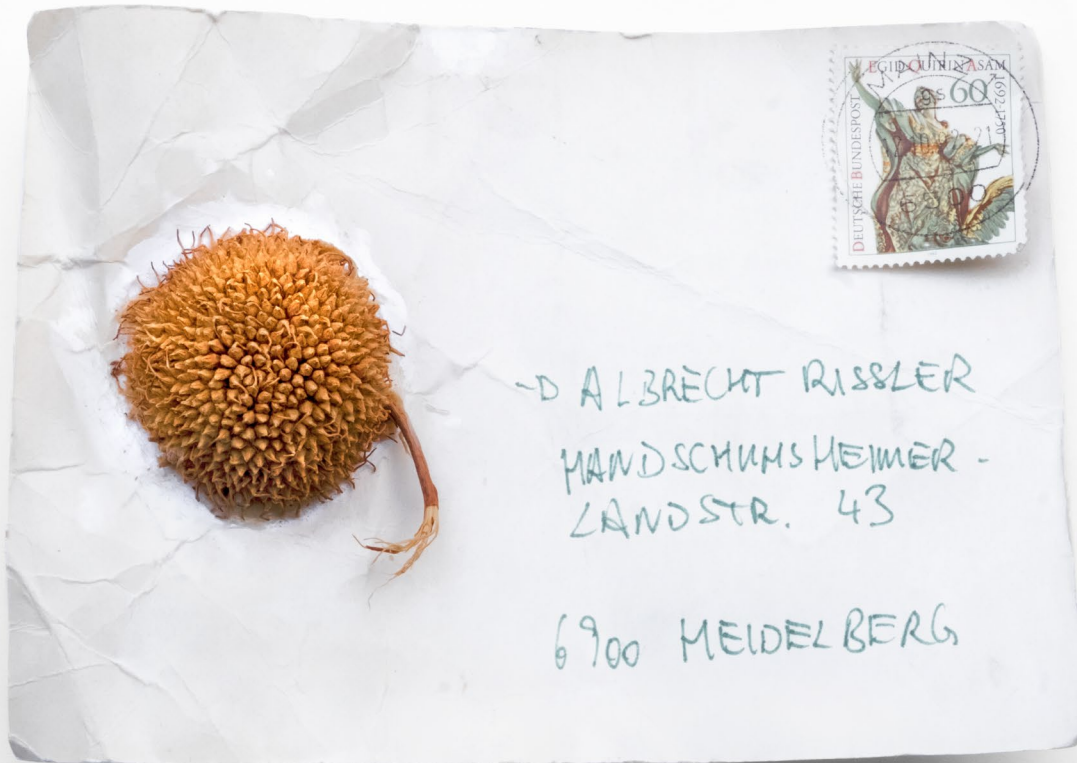 EGID QUIRIN ASAM
1692-1750
60
DEUTSCHE BUNDESPOST
MAINZ
-D ALBRECHT RISSLER
HANDSCHUHSHEIMER -
LANDSTR. 43
6900 HEIDELBERG